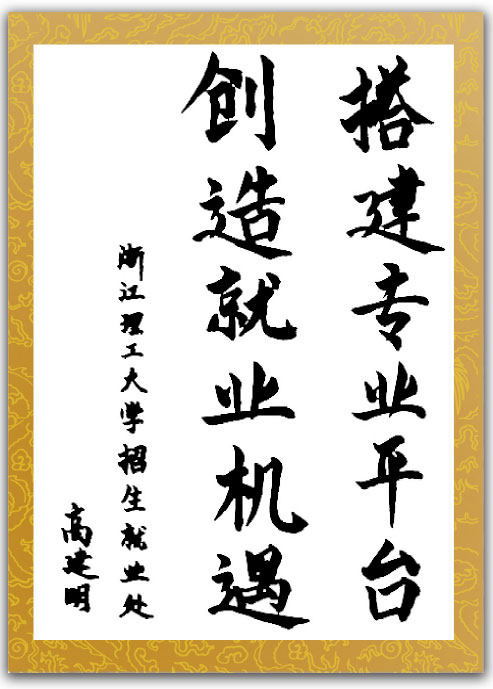 搭建专业平台
创造就业机遇
浙江理工大学招生就业处
高建明